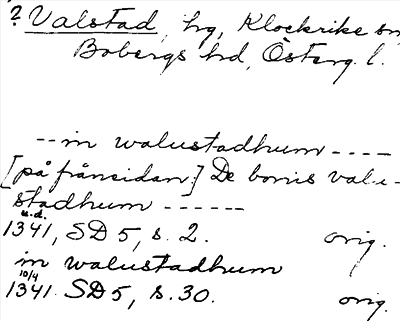 ? Valstad, hg, Klockrike sn
Bobergs hd, Österg. l.
-- in walustadhum ----
[på frånsidan:] De bonis valu-
stadhum ------
u.d.
1341, SD 5, s. 2. orig.
in walustadhum
10/4
1341 SD 5, s. 30. orig.